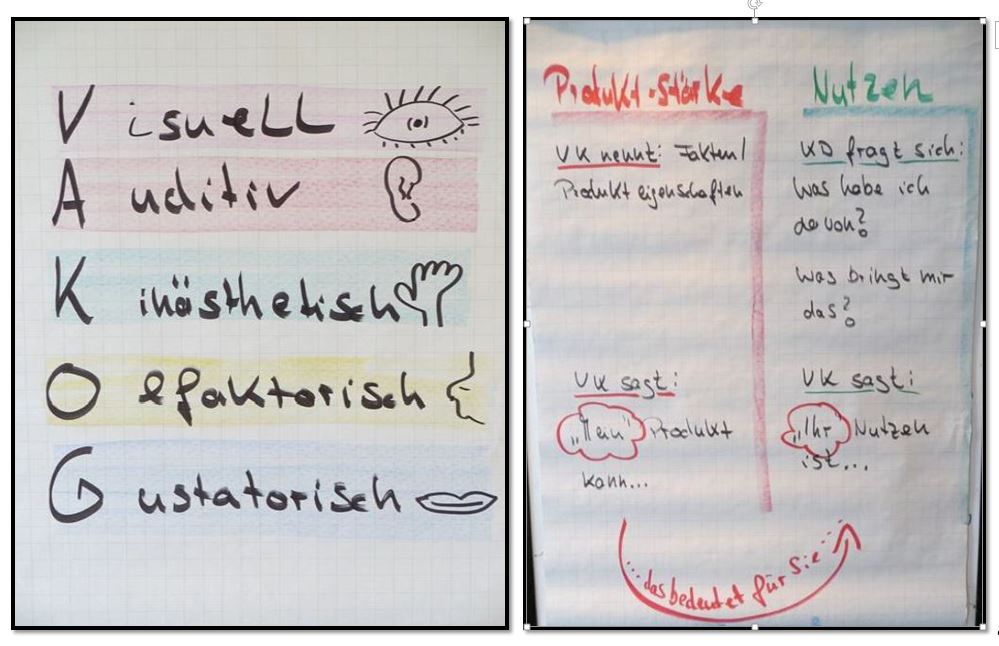 Visuell
Auditiv
Kinästhetisch
Olefaktorisch
Gustatorisch
Produkt-stärke
VK nennt: Fakten/
Produkteigenschaften
VK sagt:
„Mein" Produkt
kann...
Nutzen
KD fragt sich:
Was habe ich
davon?
Was bringt mir
das?
VK sagt:
„Ihr" Nutzen
ist...
...das bedeutet für Sie...